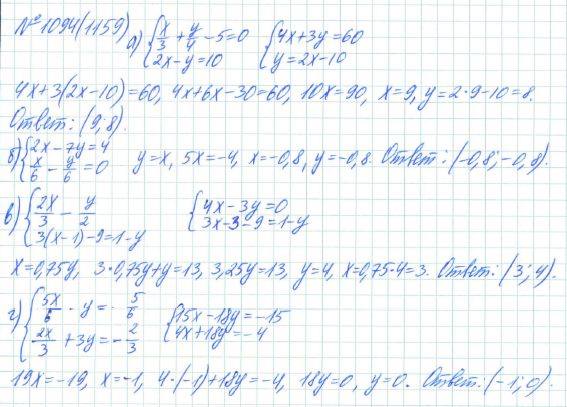 № 1094(1159) а) { x/3 + y/4 - 5 = 0 { 4x+3y=60
2x-y=10 y=2x-10
4x+3(2x-10)=60, 4x+6x-30=60, 10x=90, x=9, y=2*9-10=8.
Ответ: (9;8).
б) { 2x-7y=4
x/6 - y/6 = 0 y=x, 5x=-4, x=-0,8, y=-0,8. Ответ: (-0,8;-0,8).
в) { 2x/3 - y/2 { 4x-3y=0
3(x-1)-9=1-y 3x-3-9=1-y
x=0,75y, 3·0,75y+y=13, 3,25y=13, y=4, x=0,75·4=3. Ответ: (3;4).
г) { 5x/6 - y = -5/6 { 15x-18y=-15
2x/3 + 3y = -2/3 4x+18y=-4
19x=-19, x=-1, 4·(-1)+18y=-4, 18y=0, y=0. Ответ: (-1;0).